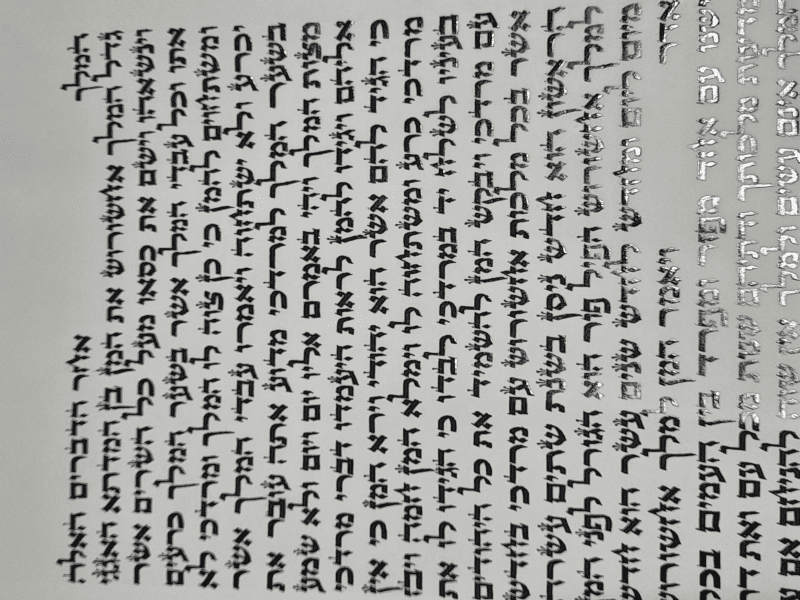 המלך אחר הדברים האלה
גדל המלך אחשורוש את המן בן המדתא האגגי
וינשאהו וישם את כסאו מעל כל השרים אשר
אתו וכל עבדי המלך אשר בשער המלך כרעים
ומשתחוים להמן כי כן צוה לו המלך ומרדכי לא
יכרע ולא ישתחוה ויאמרו עבדי המלך אשר
בשער המלך למרדכי מדוע אתה עובר את
מצות המלך ויהי באמרם אליו יום ויום ולא שמע
אליהם ויגידו להמן לראות היעמדו דברי מרדכי
כי הגיד להם אשר הוא יהודי וירא המן כי אין
מרדכי כרע ומשתחוה לו וימלא המן חמה ויבז
בעיניו לשלח יד במרדכי לבדו כי הגידו לו את
עם מרדכי ויבקש המן להשמיד את כל היהודים
אשר בכל מלכות אחשורוש עם מרדכי בחדש
הראשון הוא חדש ניסן בשנת שתים עשרה
למלך אחשורוש הפיל פור הוא הגורל לפני המן
מיום ליום ומחדש לחדש שנים עשר הוא חדש
אדר ויאמר המן למלך אחשורוש
ישנו עם אחד מפזר ומפרד בין העמים בכל
מדינות מלכותך ודתיהם שנות מכל עם ואת
אינם עשים ולמלך אין שוה להניחם אם